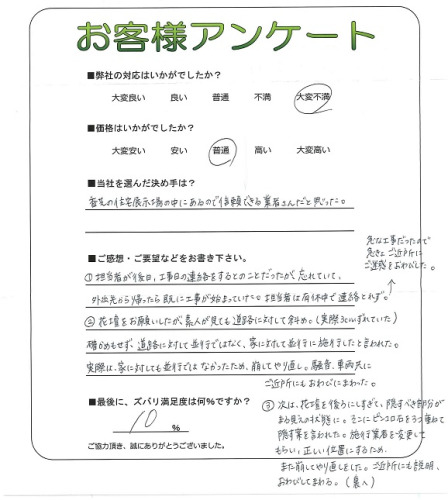 お客様アンケート
■弊社の対応はいかがでしたか?
大変良い 良い 普通 不満 大変不満
■価格はいかがでしたか?
大変安い 安い 普通 高い 大変高い
■当社を選んだ決め手は?
有名な住宅展示場の中にあるので信頼できる業者さんだと思った。
■ご感想・ご要望などをお書き下さい。
急な工事だったので
急きょご近所に
ご迷惑をおわびした。
①担当者が後日、工事日の連絡をするとのことだったが、忘れていて、
外出先から帰ったら既に工事が始まっていた。担当者は有休中で連絡とれず。
②花壇をお願いしたが、素人が見ても道路に対して斜め。(実際3cmずれていた)
確かめもせず、道路に対して並行ではなく、家に対して並行に施行したと言われた。
実際は、家に対しても並行ではなかったため、崩してやり直し。騒音、車両共に
ご近所にもおわびにまわった。
■最後に、ズバリ満足度は何%ですか?
10 %
ご協力頂き、誠にありがとうございました。
③次は、花壇を後ろにしすぎて、隠すべき部分が
まる見えの状態に。そこにピンコロ石をもう1つ重ねて
隠す案を言われた。施行業者を変更して
もらい、正しい位置にするため、
また崩してやり直しをした。ご近所にも説明、
おわびしてまわる。(裏へ)